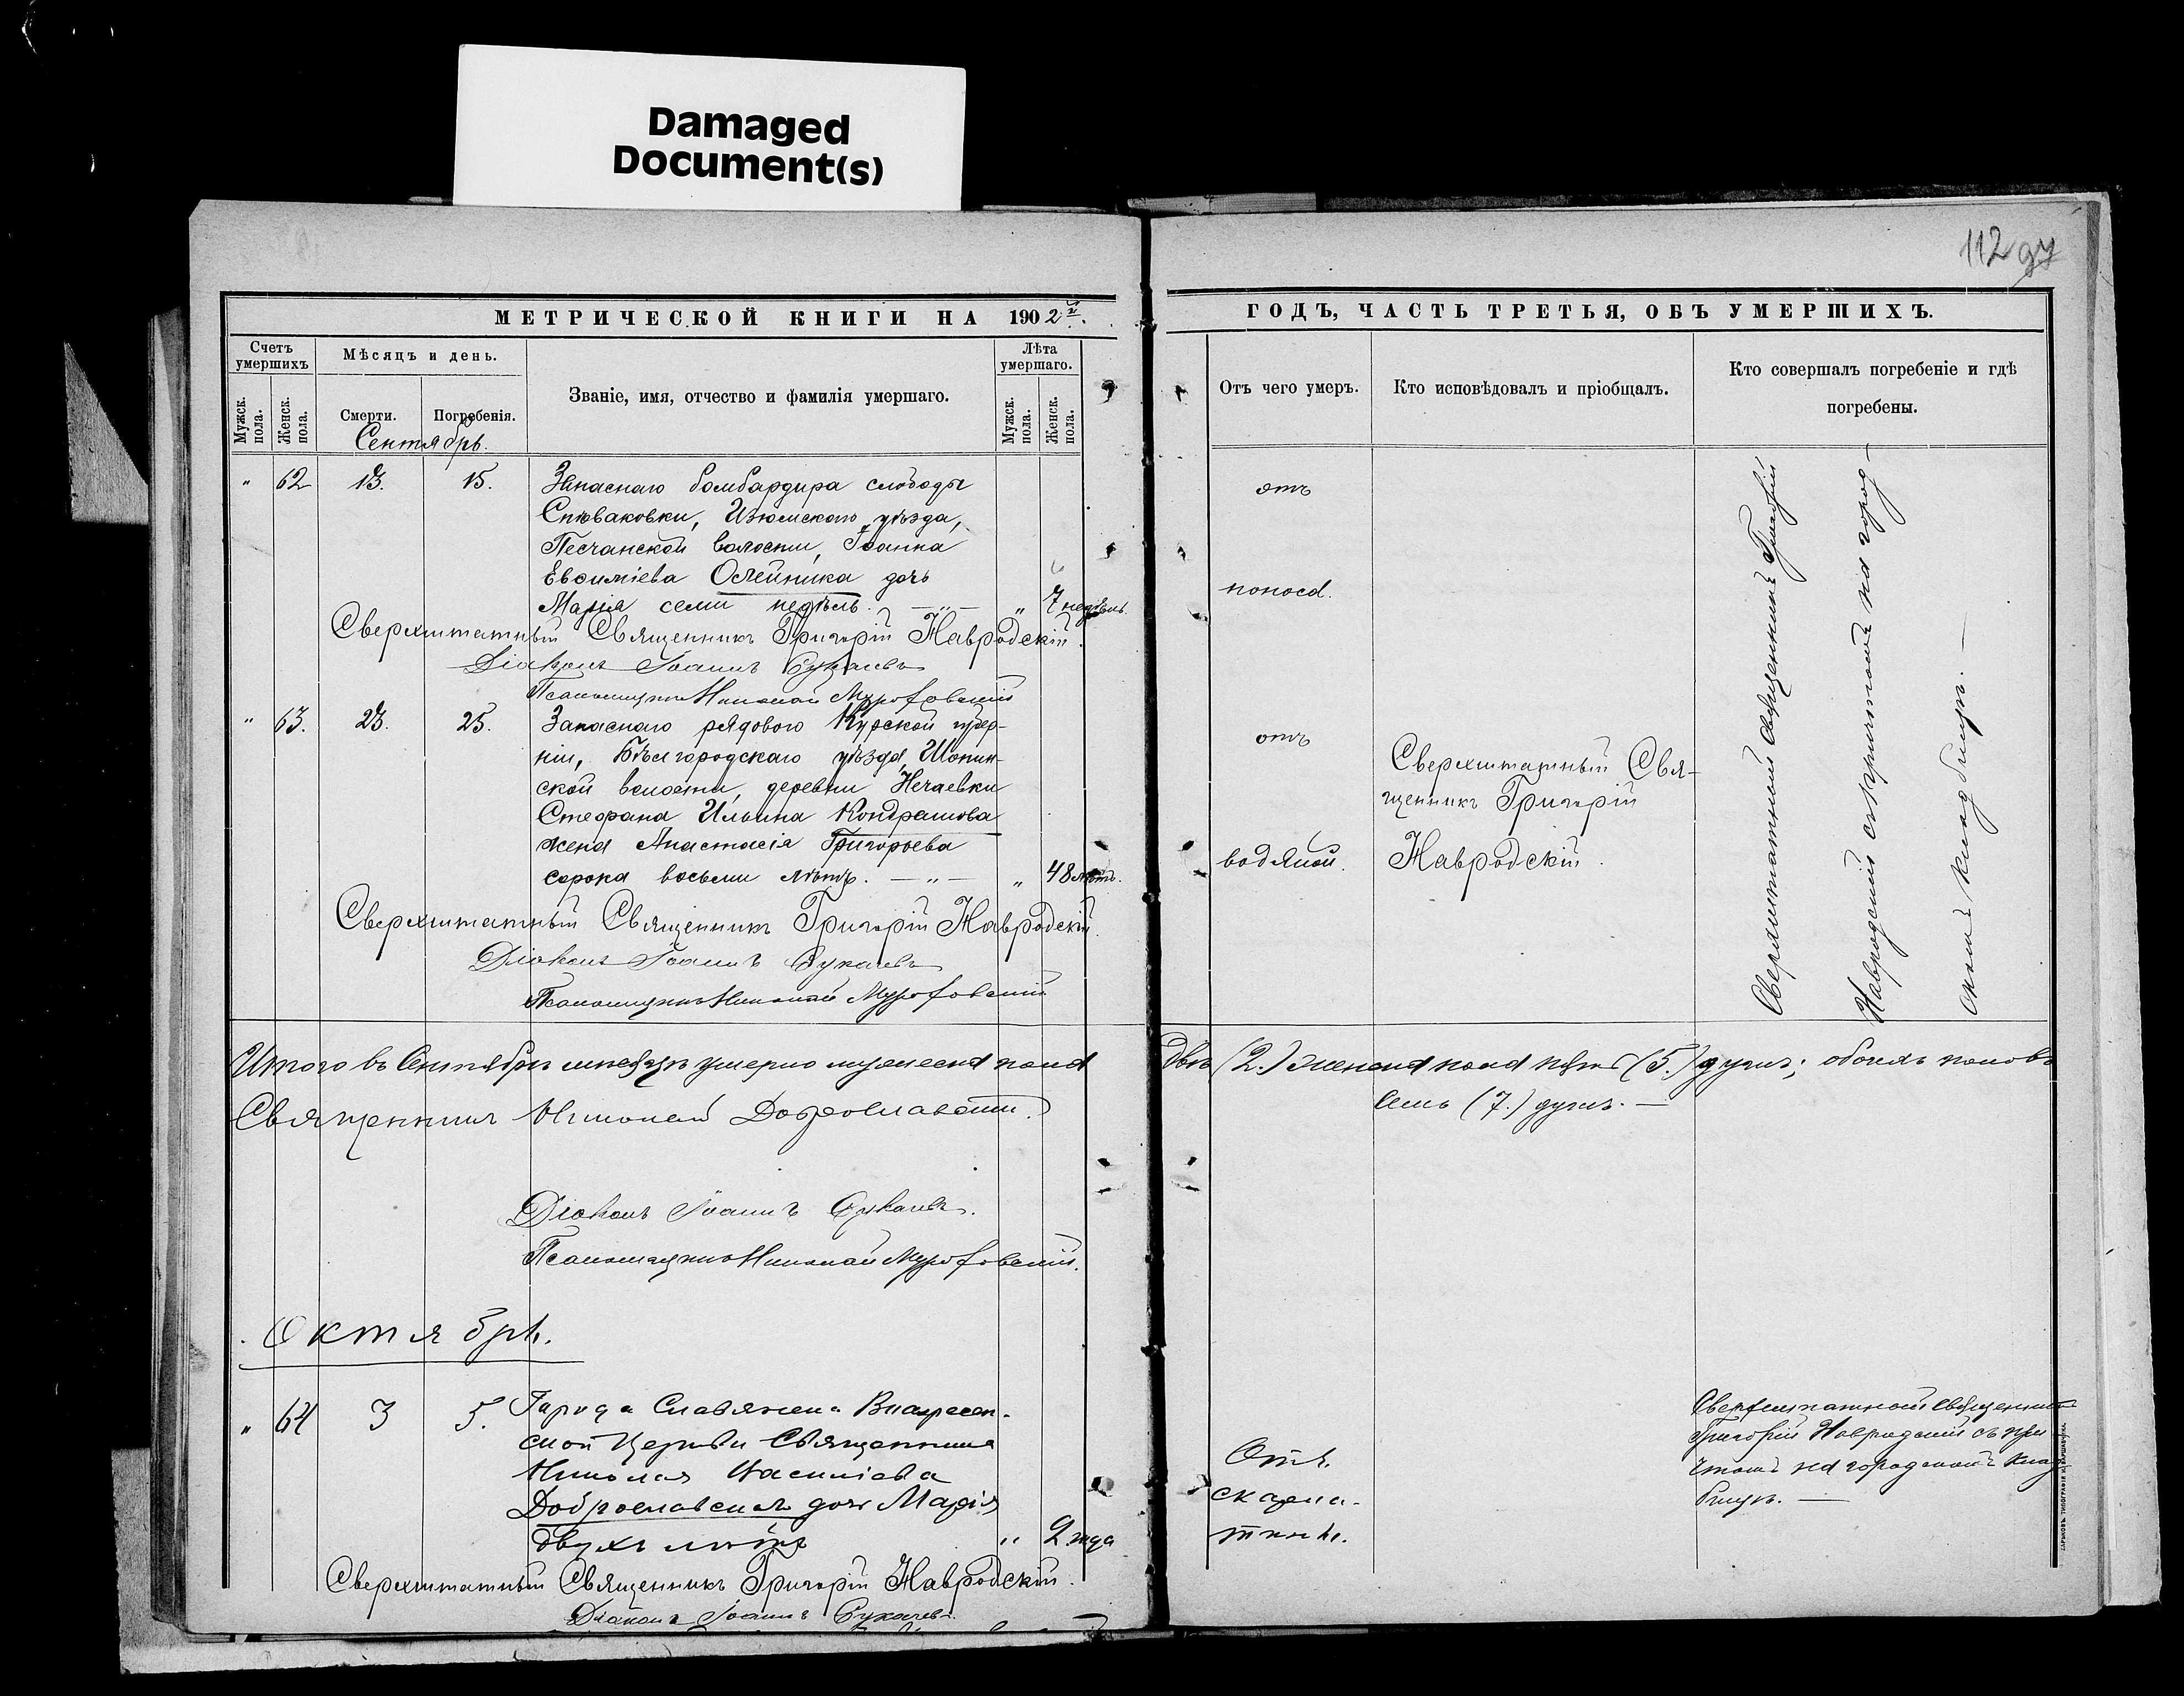 Damaged
Document(s)
112 97
МЕТРИЧЕСКОЙ КНИГИ НА 1902й.
Счетъ умершихъ
Мѣсяцъ и день.
Званіе, имя, отчество и фамилія умершаго.
Лѣта умершаго.
Мужск. пола.
Женск. пола.
Смерти.
Погребенія.
Мужск. пола.
Женск. пола.
Сентябрь.
" 62 13. 15. Запаснаго бомбардира слободы
Спѣваковки, Изюмскаго уѣзда,
Песчанской волости, Іоанна
Евѳиміева Олейника дочь
Марія семи недѣль. — " — " 7 недѣль
Сверхштатный Священникъ Григорій Навродскій.
Діаконъ Іоаннъ
Псаломщикъ Николай
" 63. 23. 25. Запаснаго рядового Курской губер-
ніи, Бѣлгородскаго уѣзда, Шопин-
ской волости, деревни Нечаевки
Стефана Ильина Кондрашова
жена Анастасія Григорьева
сорока восьми лѣтъ. — " — " 48 лѣтъ.
Сверхштатный Священникъ Григорій Навродскій.
Діаконъ Іоаннъ
Псаломщикъ Николай
Итого въ Сентябрѣ мѣсяцѣ умерло мужеска пола
Священникъ Николай Доброславскій.
Діаконъ Іоаннъ
Псаломщикъ Николай
Октябрь.
" 64 3 5. Города Славянска Воскресен-
ской Церкви Священника
Николая Васильева
Доброславскаго дочь Марія
двухъ лѣтъ " 2 года
Сверхштатный Священникъ Григорій Навродскій.
Діаконъ Іоаннъ
ГОДЪ, ЧАСТЬ ТРЕТЬЯ, ОБЪ УМЕРШИХЪ.
Отъ чего умеръ.
Кто исповѣдовалъ и пріобщалъ.
Кто совершалъ погребеніе и гдѣ
погребены.
отъ
поноса.
отъ
водяной.
Сверхштатный Свя-
щенникъ Григорій
Навродскій.
Сверхштатный священникъ Григорій
Навродскій съ причтомъ на город-
скомъ кладбищѣ. —
двѣ (2.) женска пола пять (5.) душъ; обоихъ половъ
семь (7.) душъ. —
Отъ
скарла-
тины.
Сверхштатный священникъ
Григорій Навродскій съ при-
чтомъ на городскомъ клад-
бищѣ. —